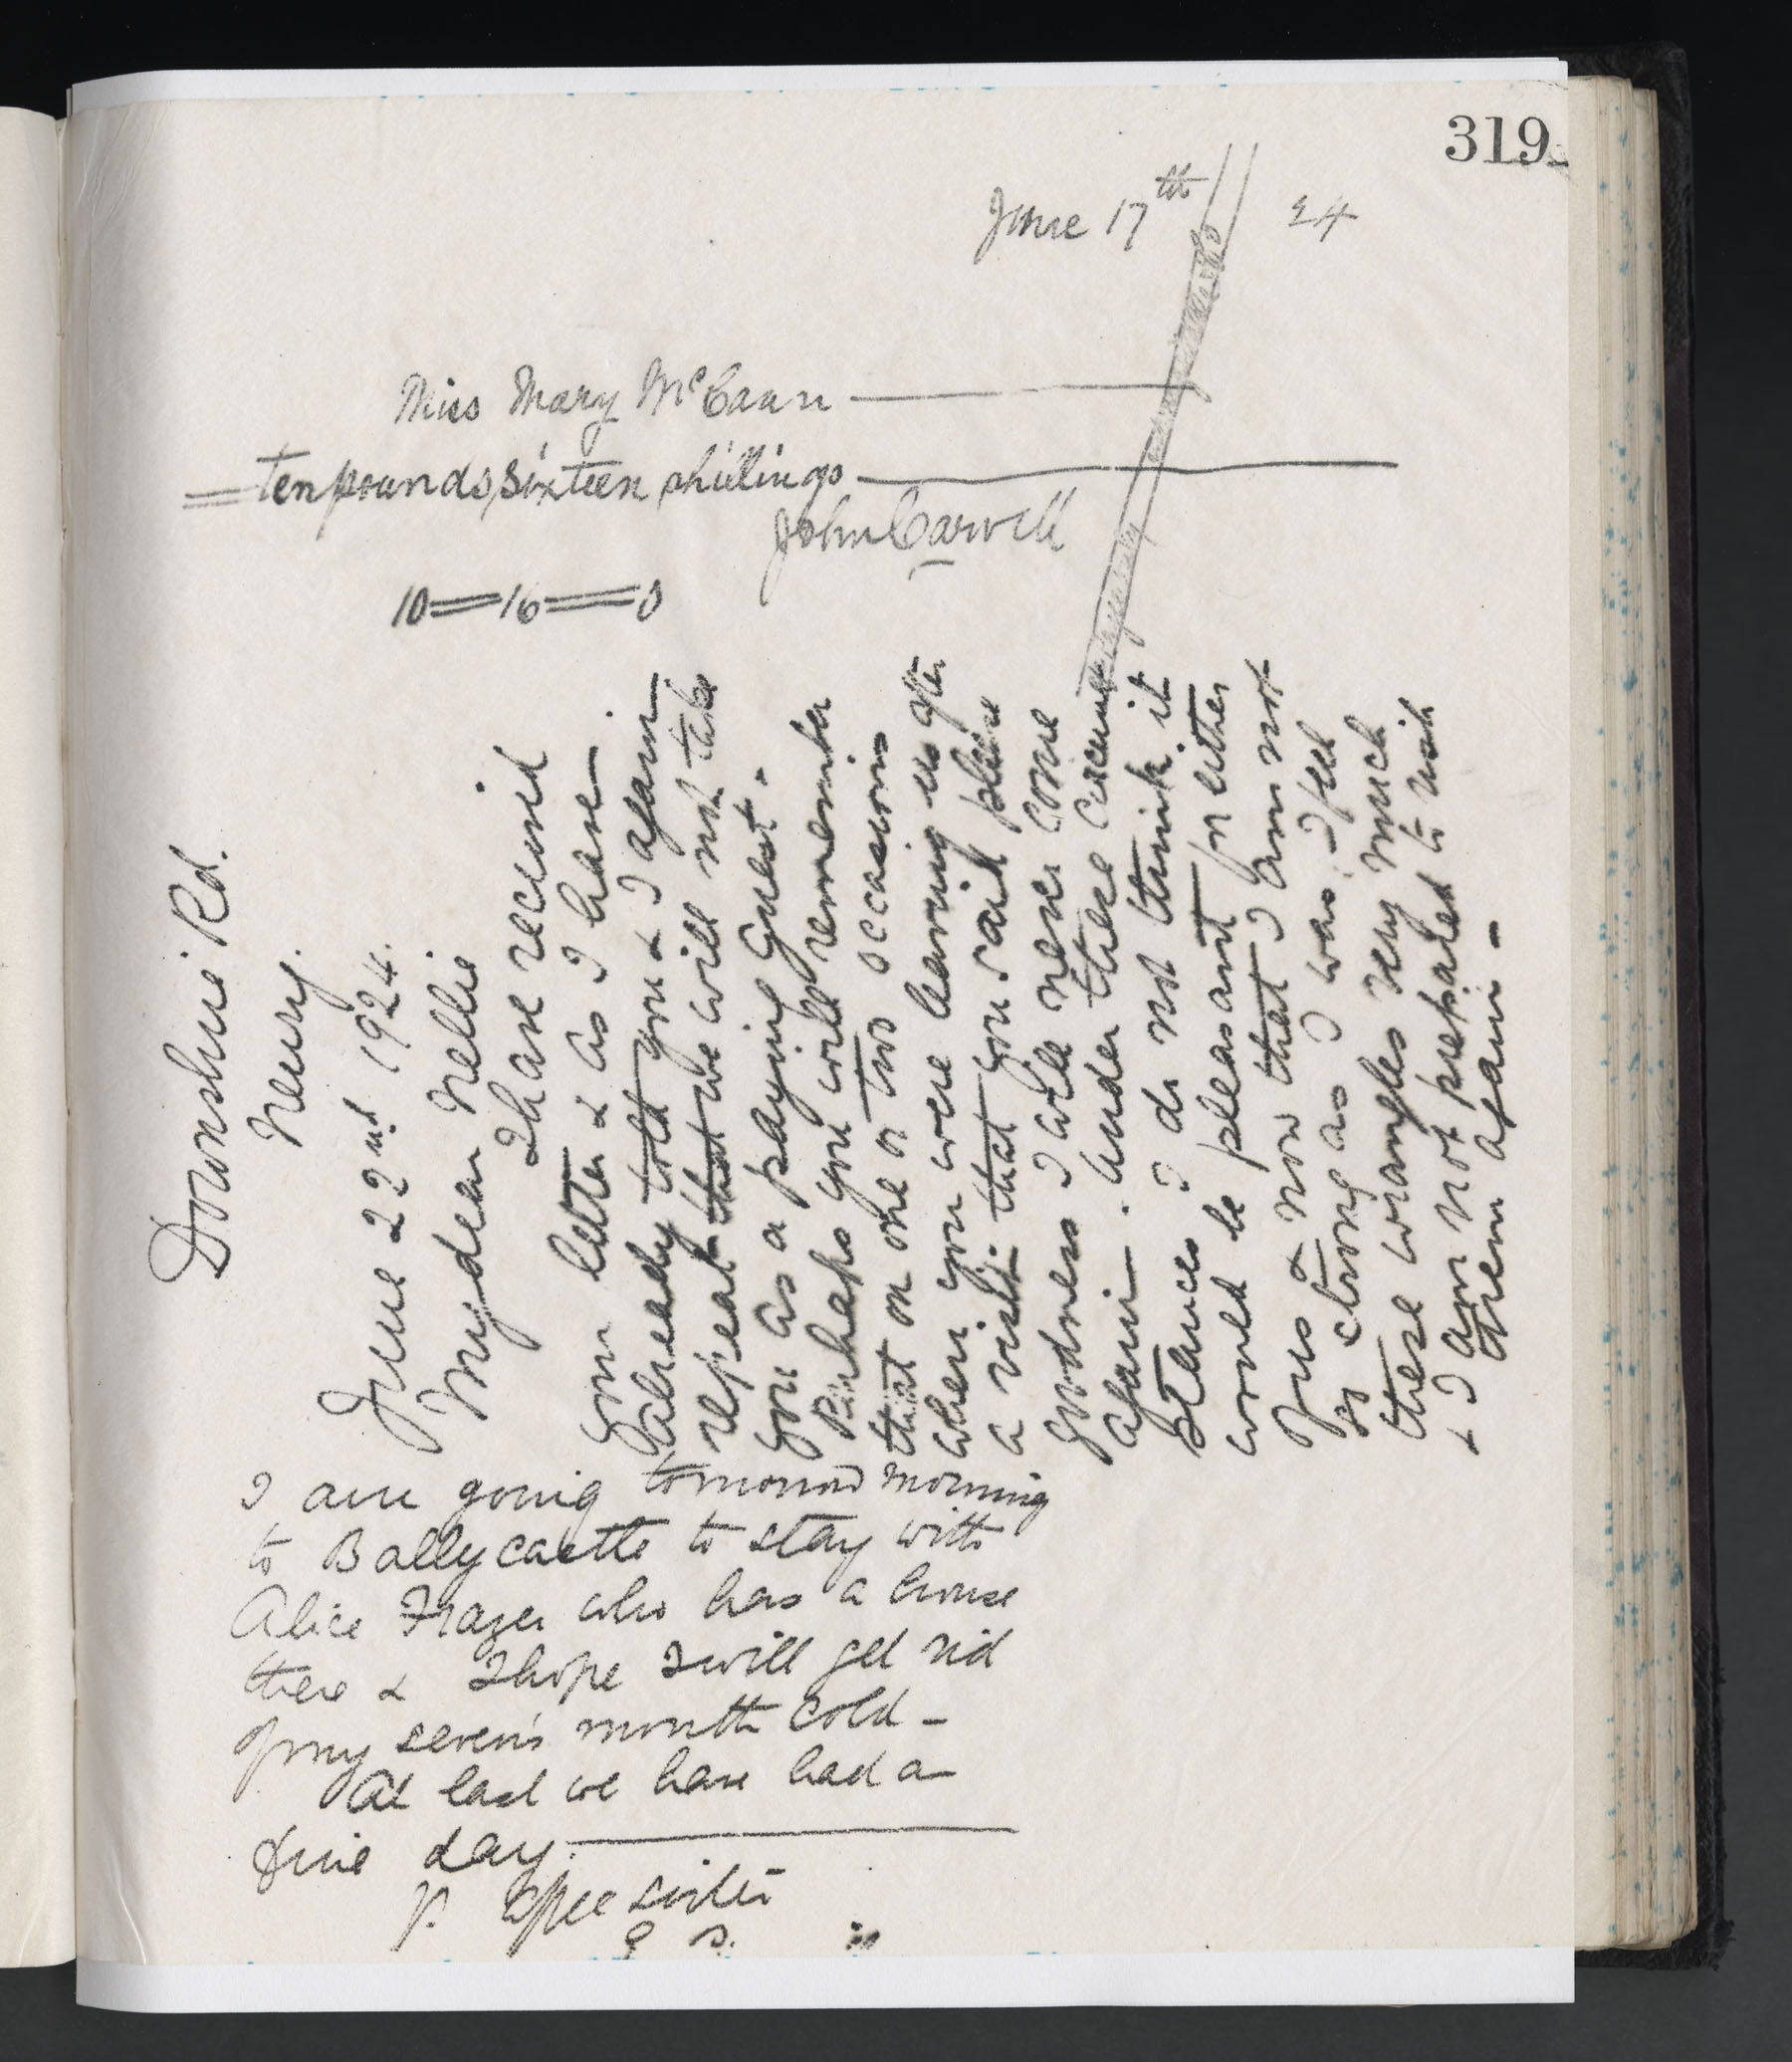 319
June 17th 24
Miss Mary McCann
ten pounds, sixteen shillings
John Carvill
10 = 16 = 0
Downshire Rd.
Newry.
June 22nd 1924.
My dear Nellie
I have received
your letter & as I have
already told you & I again
repeat that we will not take
you as a paying Guest.
Perhaps you will remember
that on one or two occasions
when you were leaving us after
a visit. that you said please
goodness I will never come
again. under these circum
stances I do not think it
would be pleasant for either
of us & now that I am not
as strong as I was, I feel
these wrangles very much
& I am not prepared to risk
them again -
I am going tomorrow morning
to Ballycastle to stay with
Alice Frazer who has a house
there & I hope I will get rid
of my seven's month cold -
At last we have had a
fine day.
Yr. affec sister